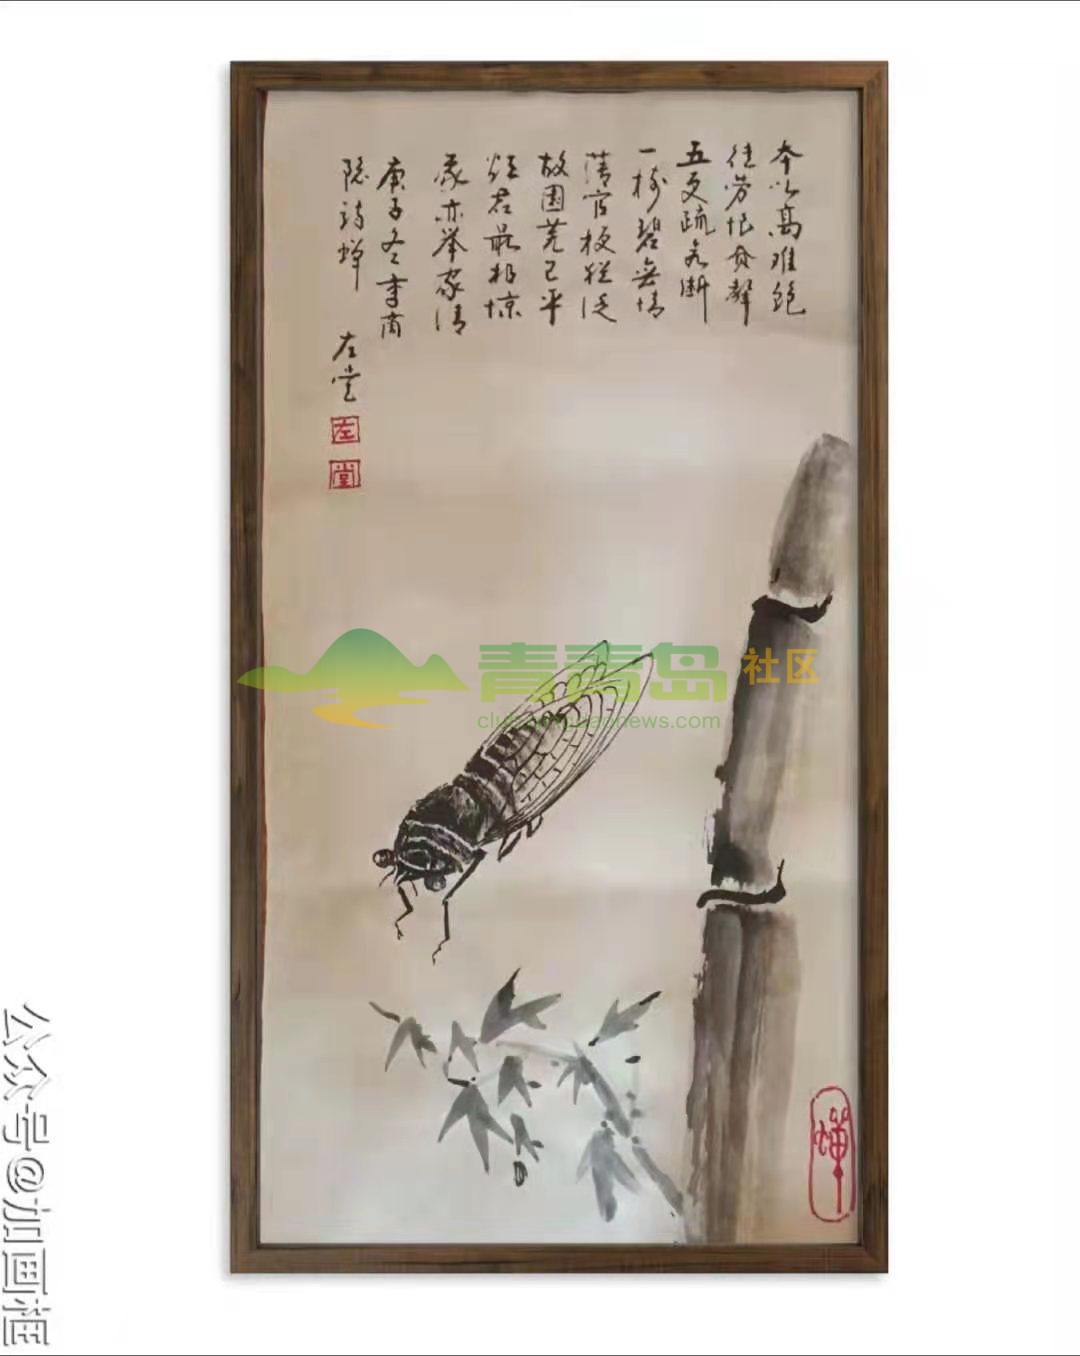 本以高难饱
徒劳恨费聲
五更疏欲断
一树碧無情
薄宦梗犹泛
故园芜已平
烦君最相惊
我亦举家清
庚子冬李商
隐诗蝉 左堂
左
堂
青青岛社区
club.qingdaonews.com
蝉
公众号@加画框